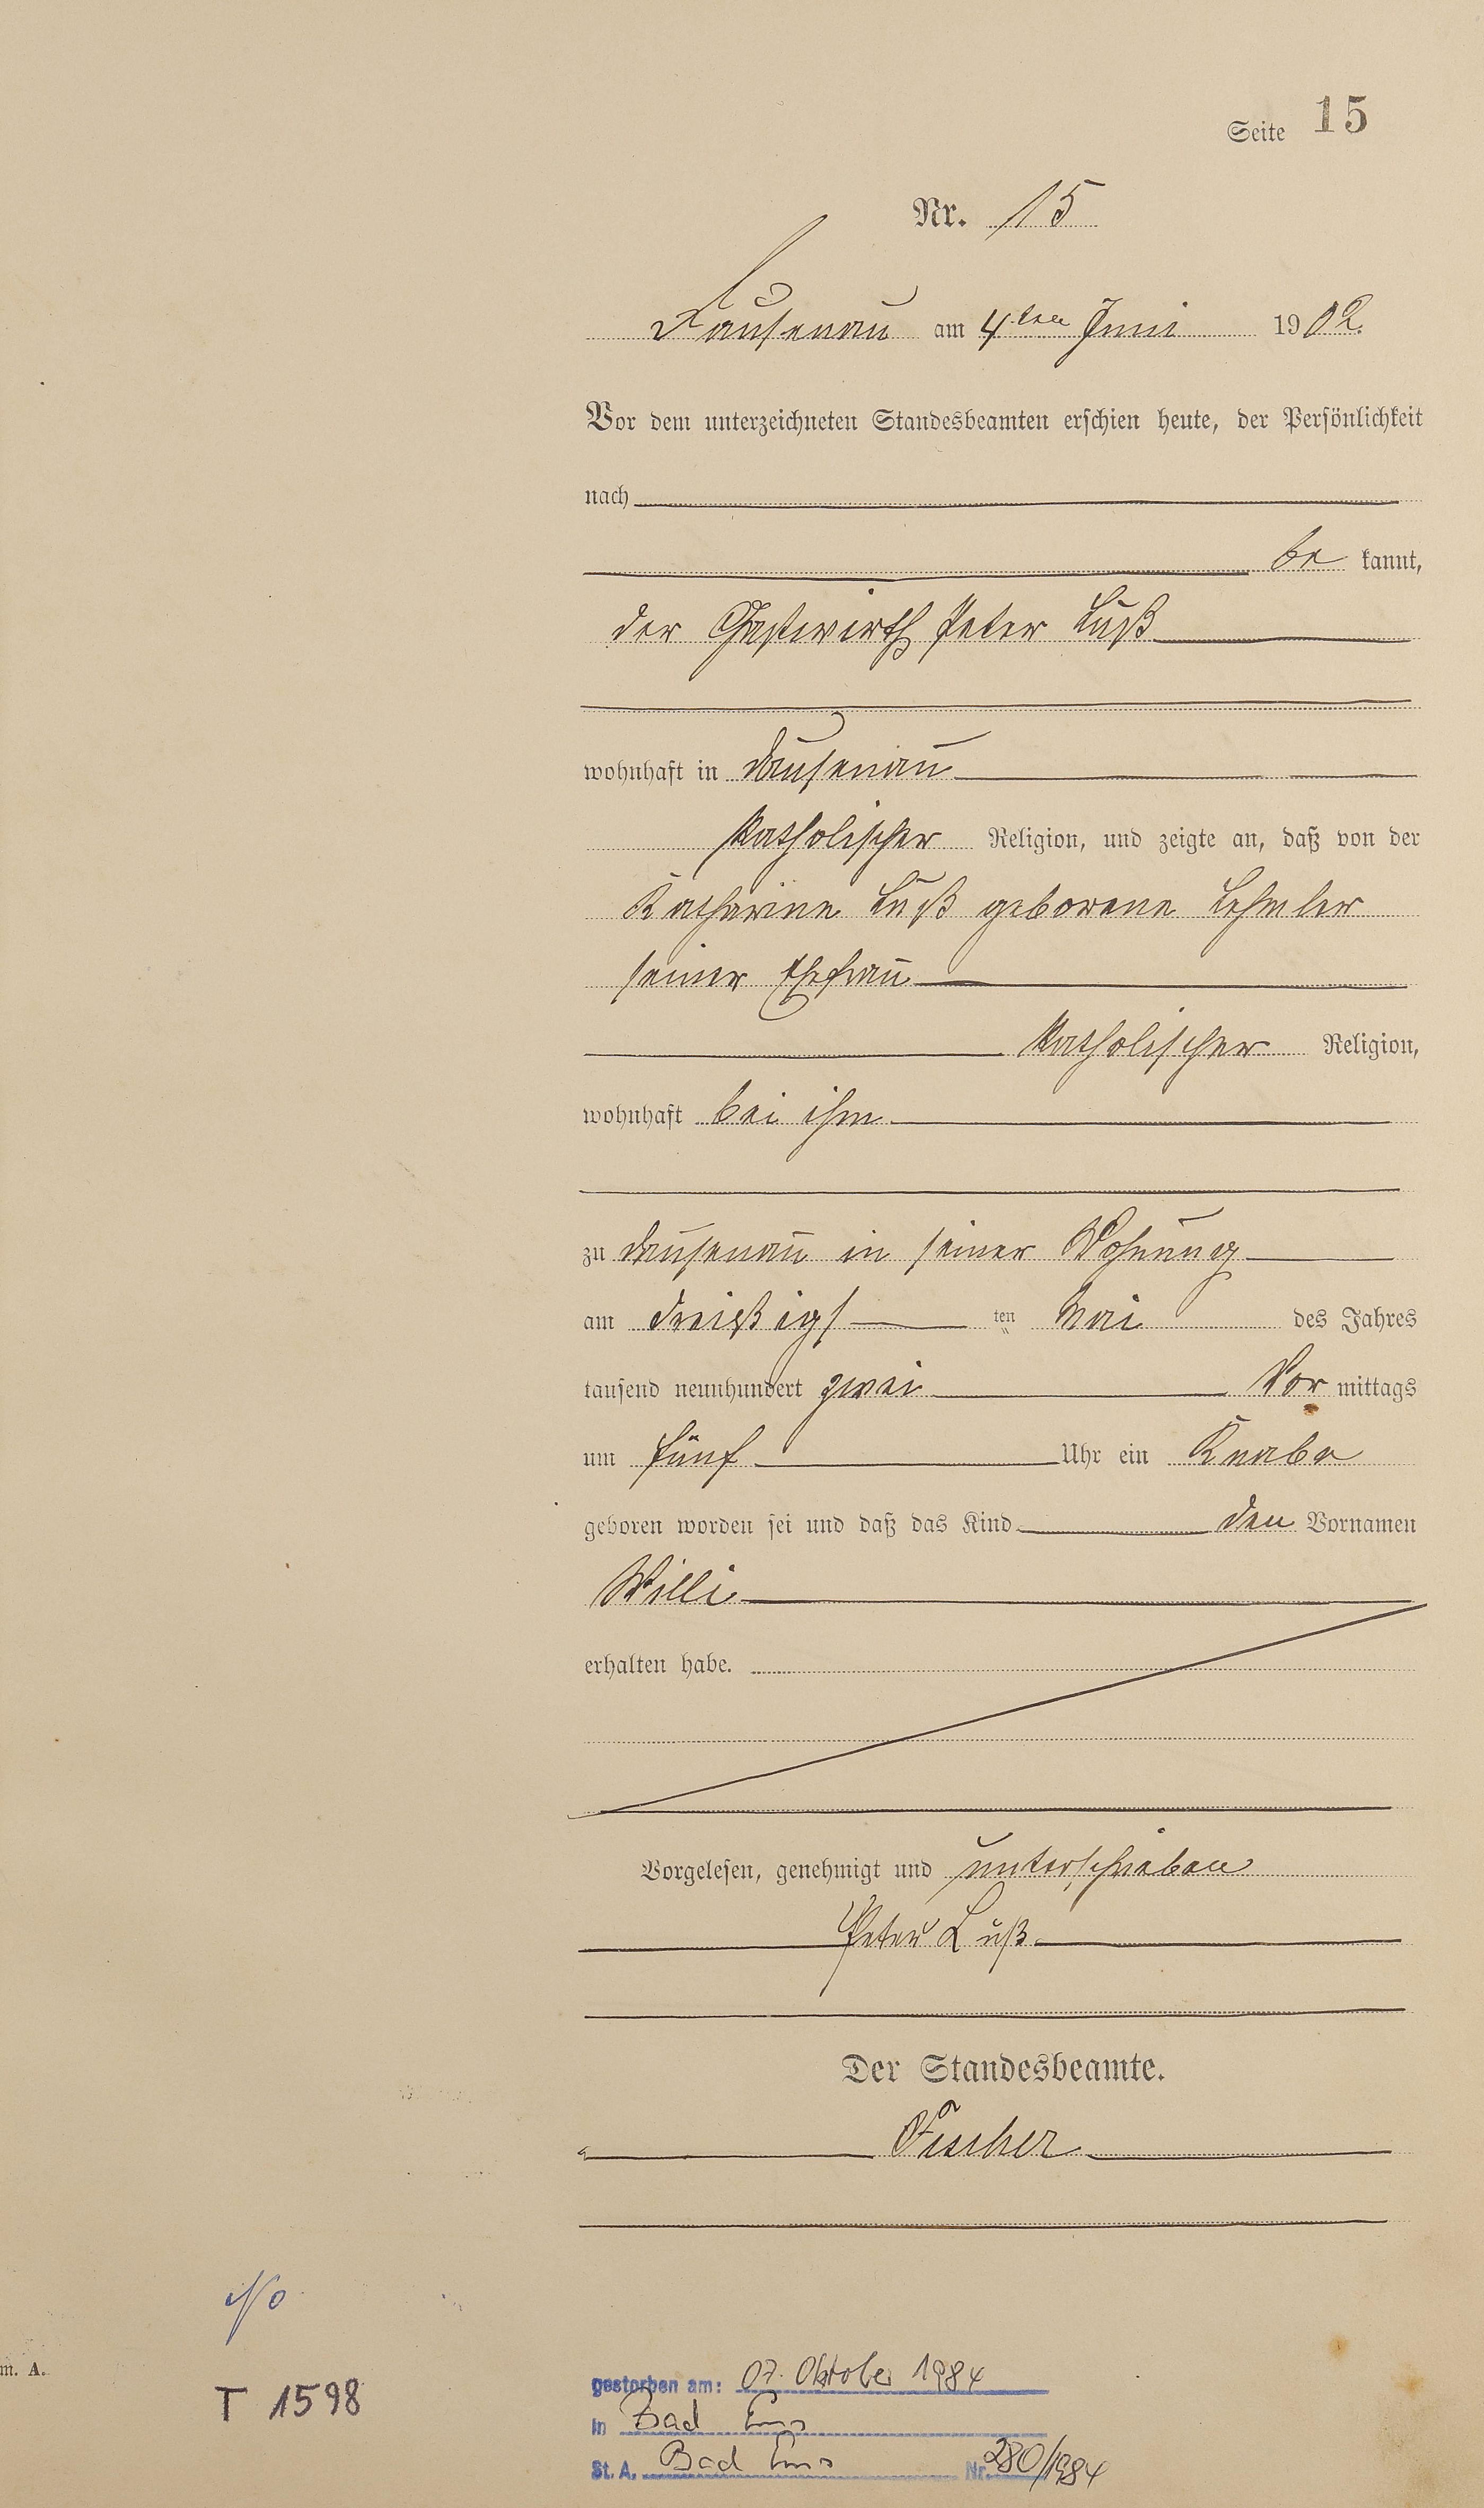 Seite 15
Nr. 15
Dausenau am 4ten Juni 1902.
Vor dem unterzeichneten Standesbeamten erschien heute, der Persönlichkeit
nach
be kannt,
der Gastwirth Peter Luß
wohnhaft in Dausenau
katholischer Religion, und zeigte an, daß von der
Katharina Luß geborene Lehmler
seiner Ehefrau
katholischer Religion,
wohnhaft bei ihm
zu Dausenau in seiner Wohnung
am dreißigs ten Mai des Jahres
tausend neunhundert zwei Vor mittags
um fünf Uhr ein Knabe
geboren worden sei und daß das Kind den Vornamen
Willi
erhalten habe.
Vorgelesen, genehmigt und unterschrieben
Peter Luß
Der Standesbeamte.
Fischer
m. A.
T 1598
gestorben am: 07. Oktober 1984
in Bad Ems
St. A. Bad Ems Nr. 280/1984